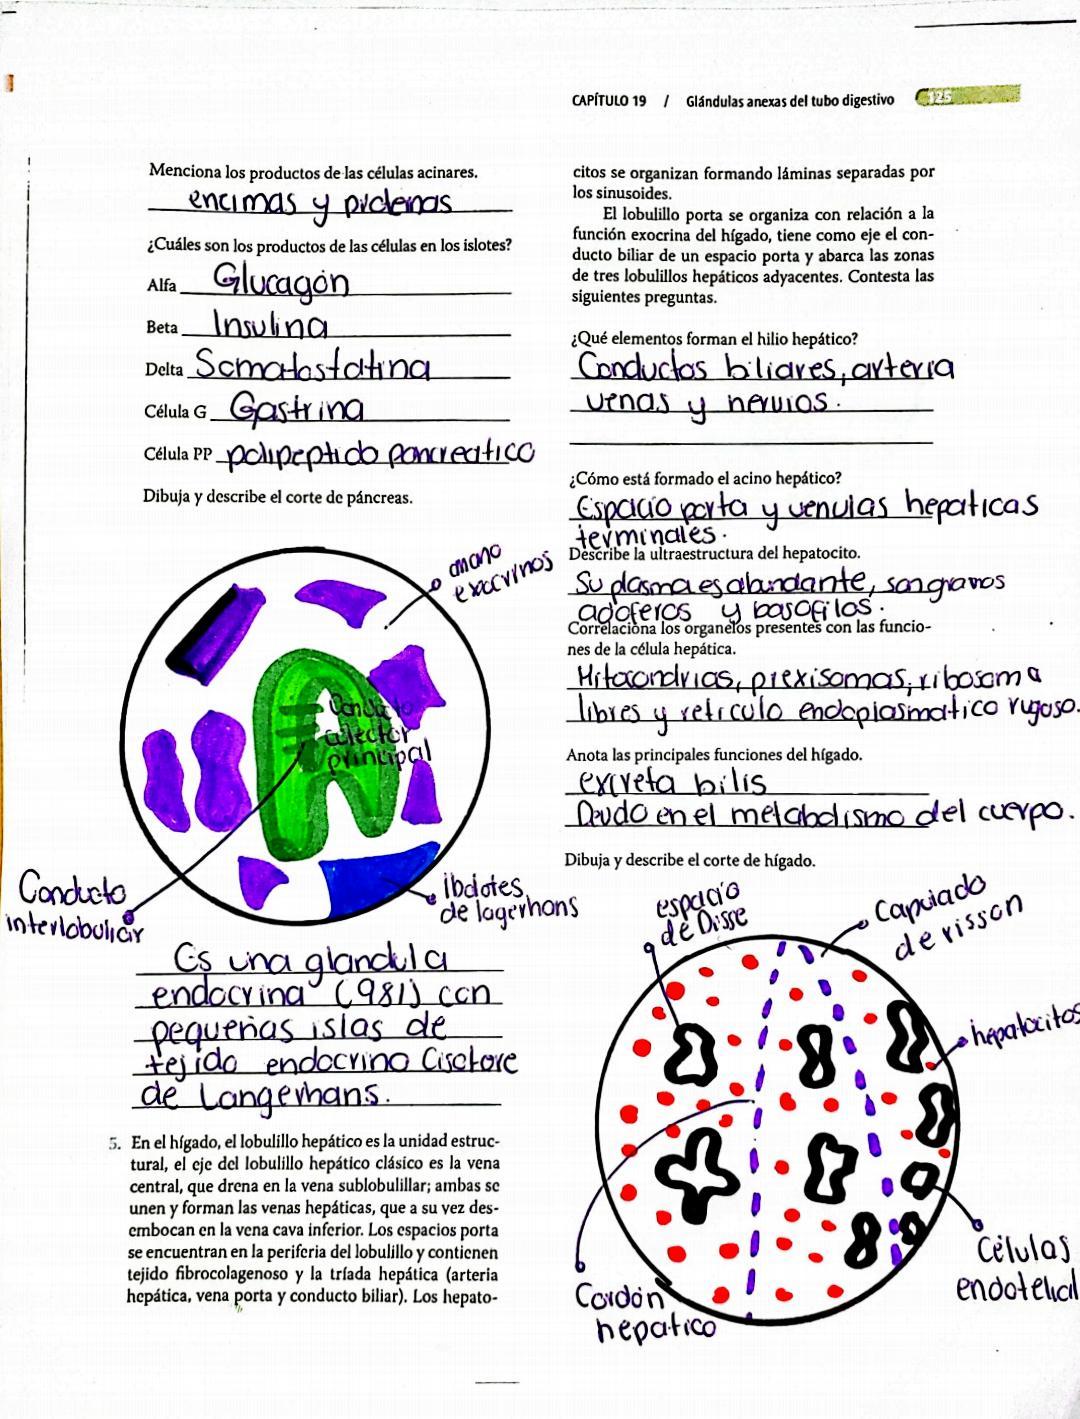 CAPÍTULO 19 / Glándulas anexas del tubo digestivo 125
Menciona los productos de las células acinares.
encimas y
¿Cuáles son los productos de las células en los islotes?
Alfa Glucagón
Beta Insulina
Delta Somatostatina
Célula G Gastrina
Célula PP polipeptido pancreatico
Dibuja y describe el corte de páncreas.
exocrinos
Conducto
colector
principal
Conducto
interlobulicar
ibclotes
de lagerhans
Es una glandula
endocrina (981) con
pequeñas islas de
tejido endocrino
de Langerhans.
5. En el hígado, el lobulillo hepático es la unidad estruc-
tural, el eje del lobulillo hepático clásico es la vena
central, que drena en la vena sublobulillar; ambas se
unen y forman las venas hepáticas, que a su vez des-
embocan en la vena cava inferior. Los espacios porta
se encuentran en la periferia del lobulillo y contienen
tejido fibrocolagenoso y la tríada hepática (arteria
hepática, vena porta y conducto biliar). Los hepato-
citos se organizan formando láminas separadas por
los sinusoides.
El lobulillo porta se organiza con relación a la
función exocrina del hígado, tiene como eje el con-
ducto biliar de un espacio porta y abarca las zonas
de tres lobulillos hepáticos adyacentes. Contesta las
siguientes preguntas.
¿Qué elementos forman el hilio hepático?
Conductos biliares, arteria
venas y nervios.
¿Cómo está formado el acino hepático?
Espacio porta y venulas hepaticas
terminales.
Describe la ultraestructura del hepatocito.
Su plasma es abundante, son granos
y basofilos.
Correlaciona los organelos presentes con las funcio-
nes de la célula hepática.
Mitocondrias, prexisomas, ribosoma
libres y reticulo endoplasmatico rugoso.
Anota las principales funciones del hígado.
excreta bilis
en el metabolismo del cuerpo.
Dibuja y describe el corte de hígado.
espacio
de Disse
de risson
hepatocitos
Células
endotelial
Cordón
hepatico